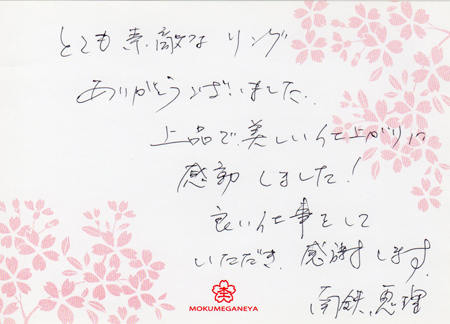 とても素敵なリング
ありがとうございました。
上品で美しい仕上がりに
感動しました!
良い仕事をして
いただき、感謝します。
恵理
MOKUMEGANEYA